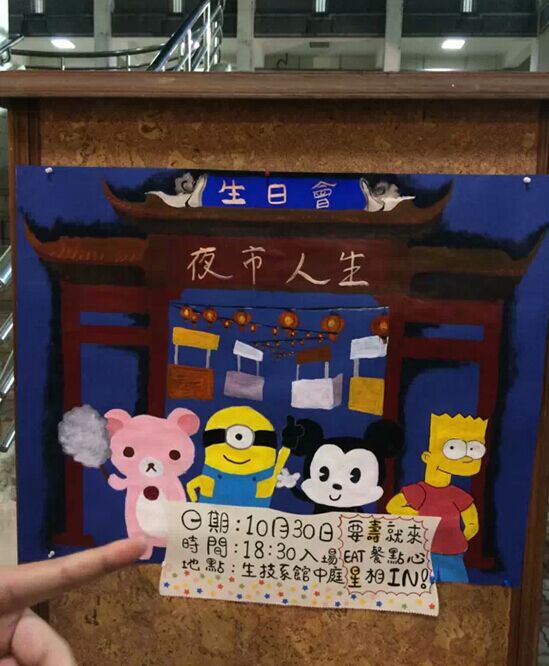 生日會
夜市人生
日期:10月30日
時間:18:30入場
地點:生技系館中庭
要壽就來
EAT餐點心
星相IN!